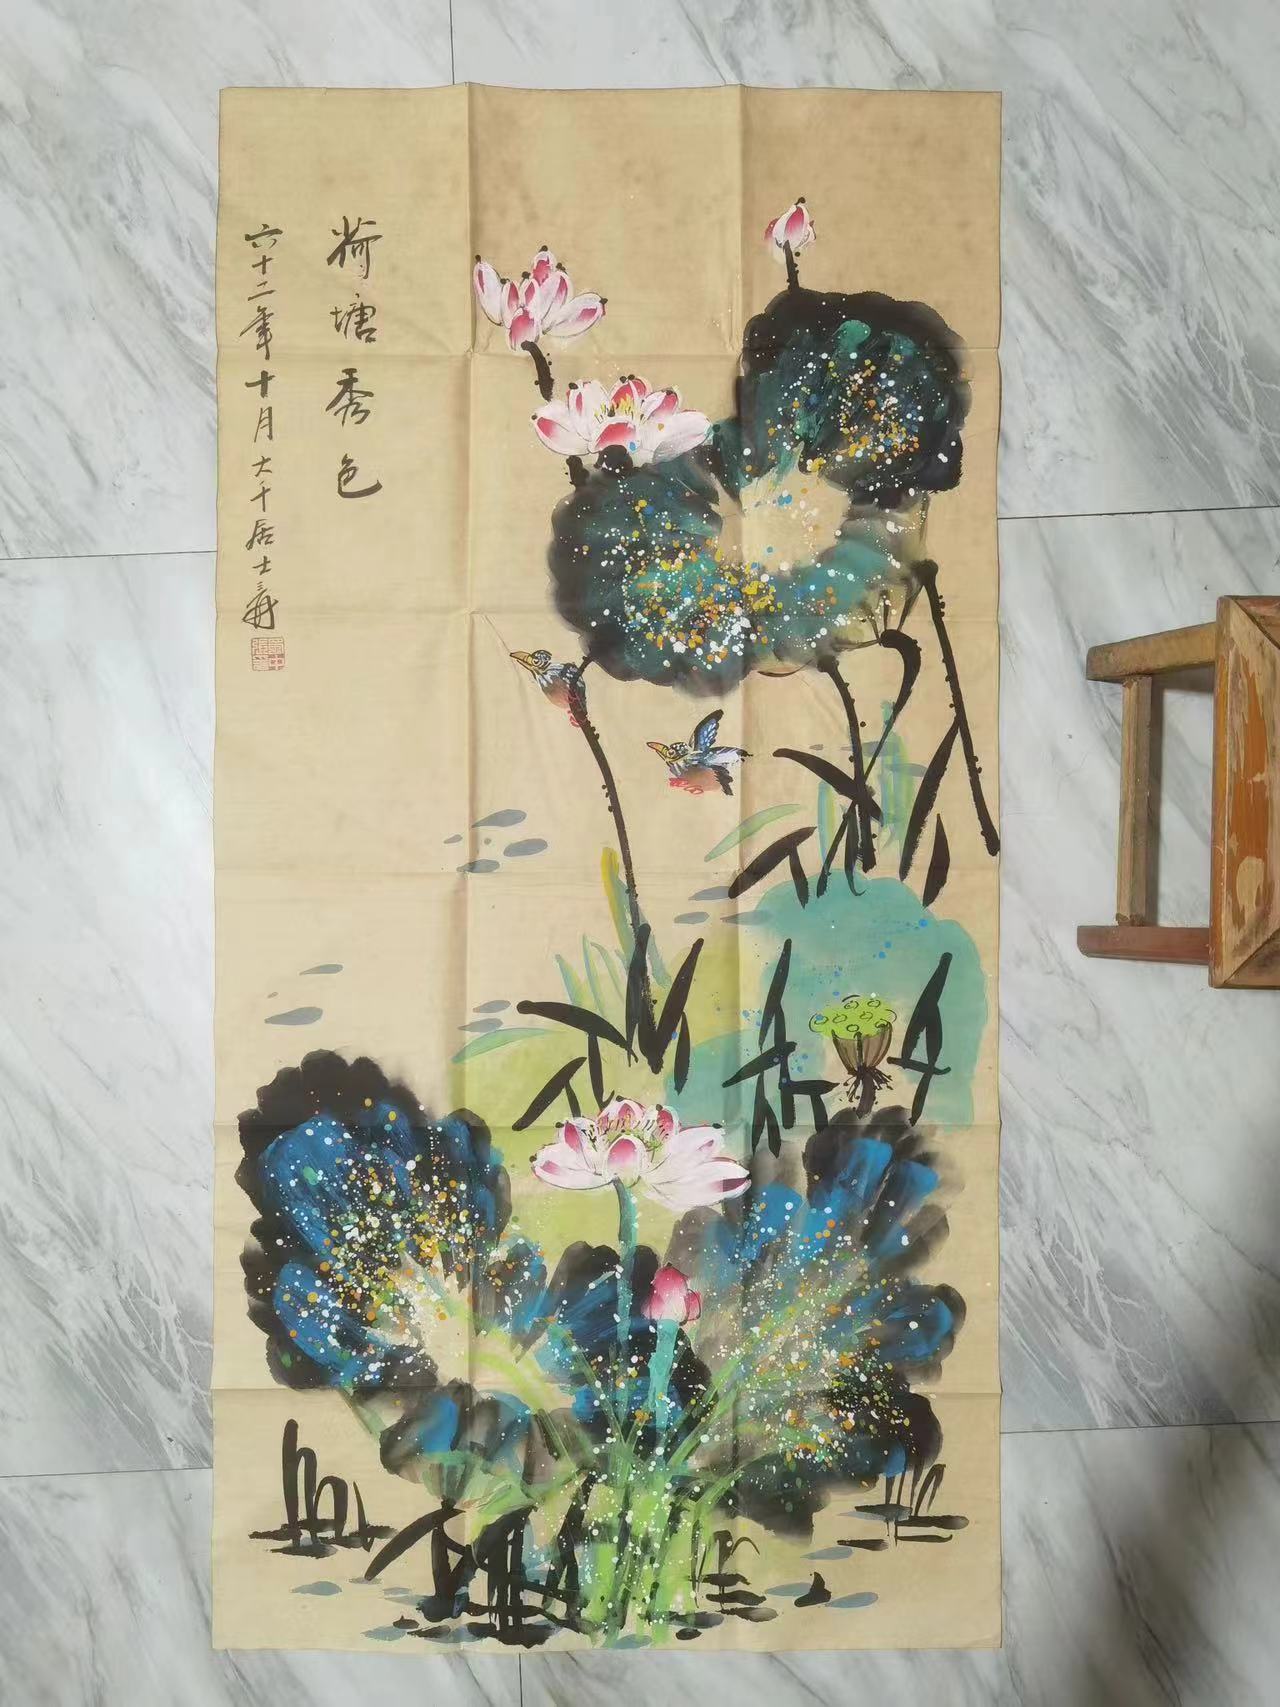 荷塘秀色
六十二年十月大千居士爰